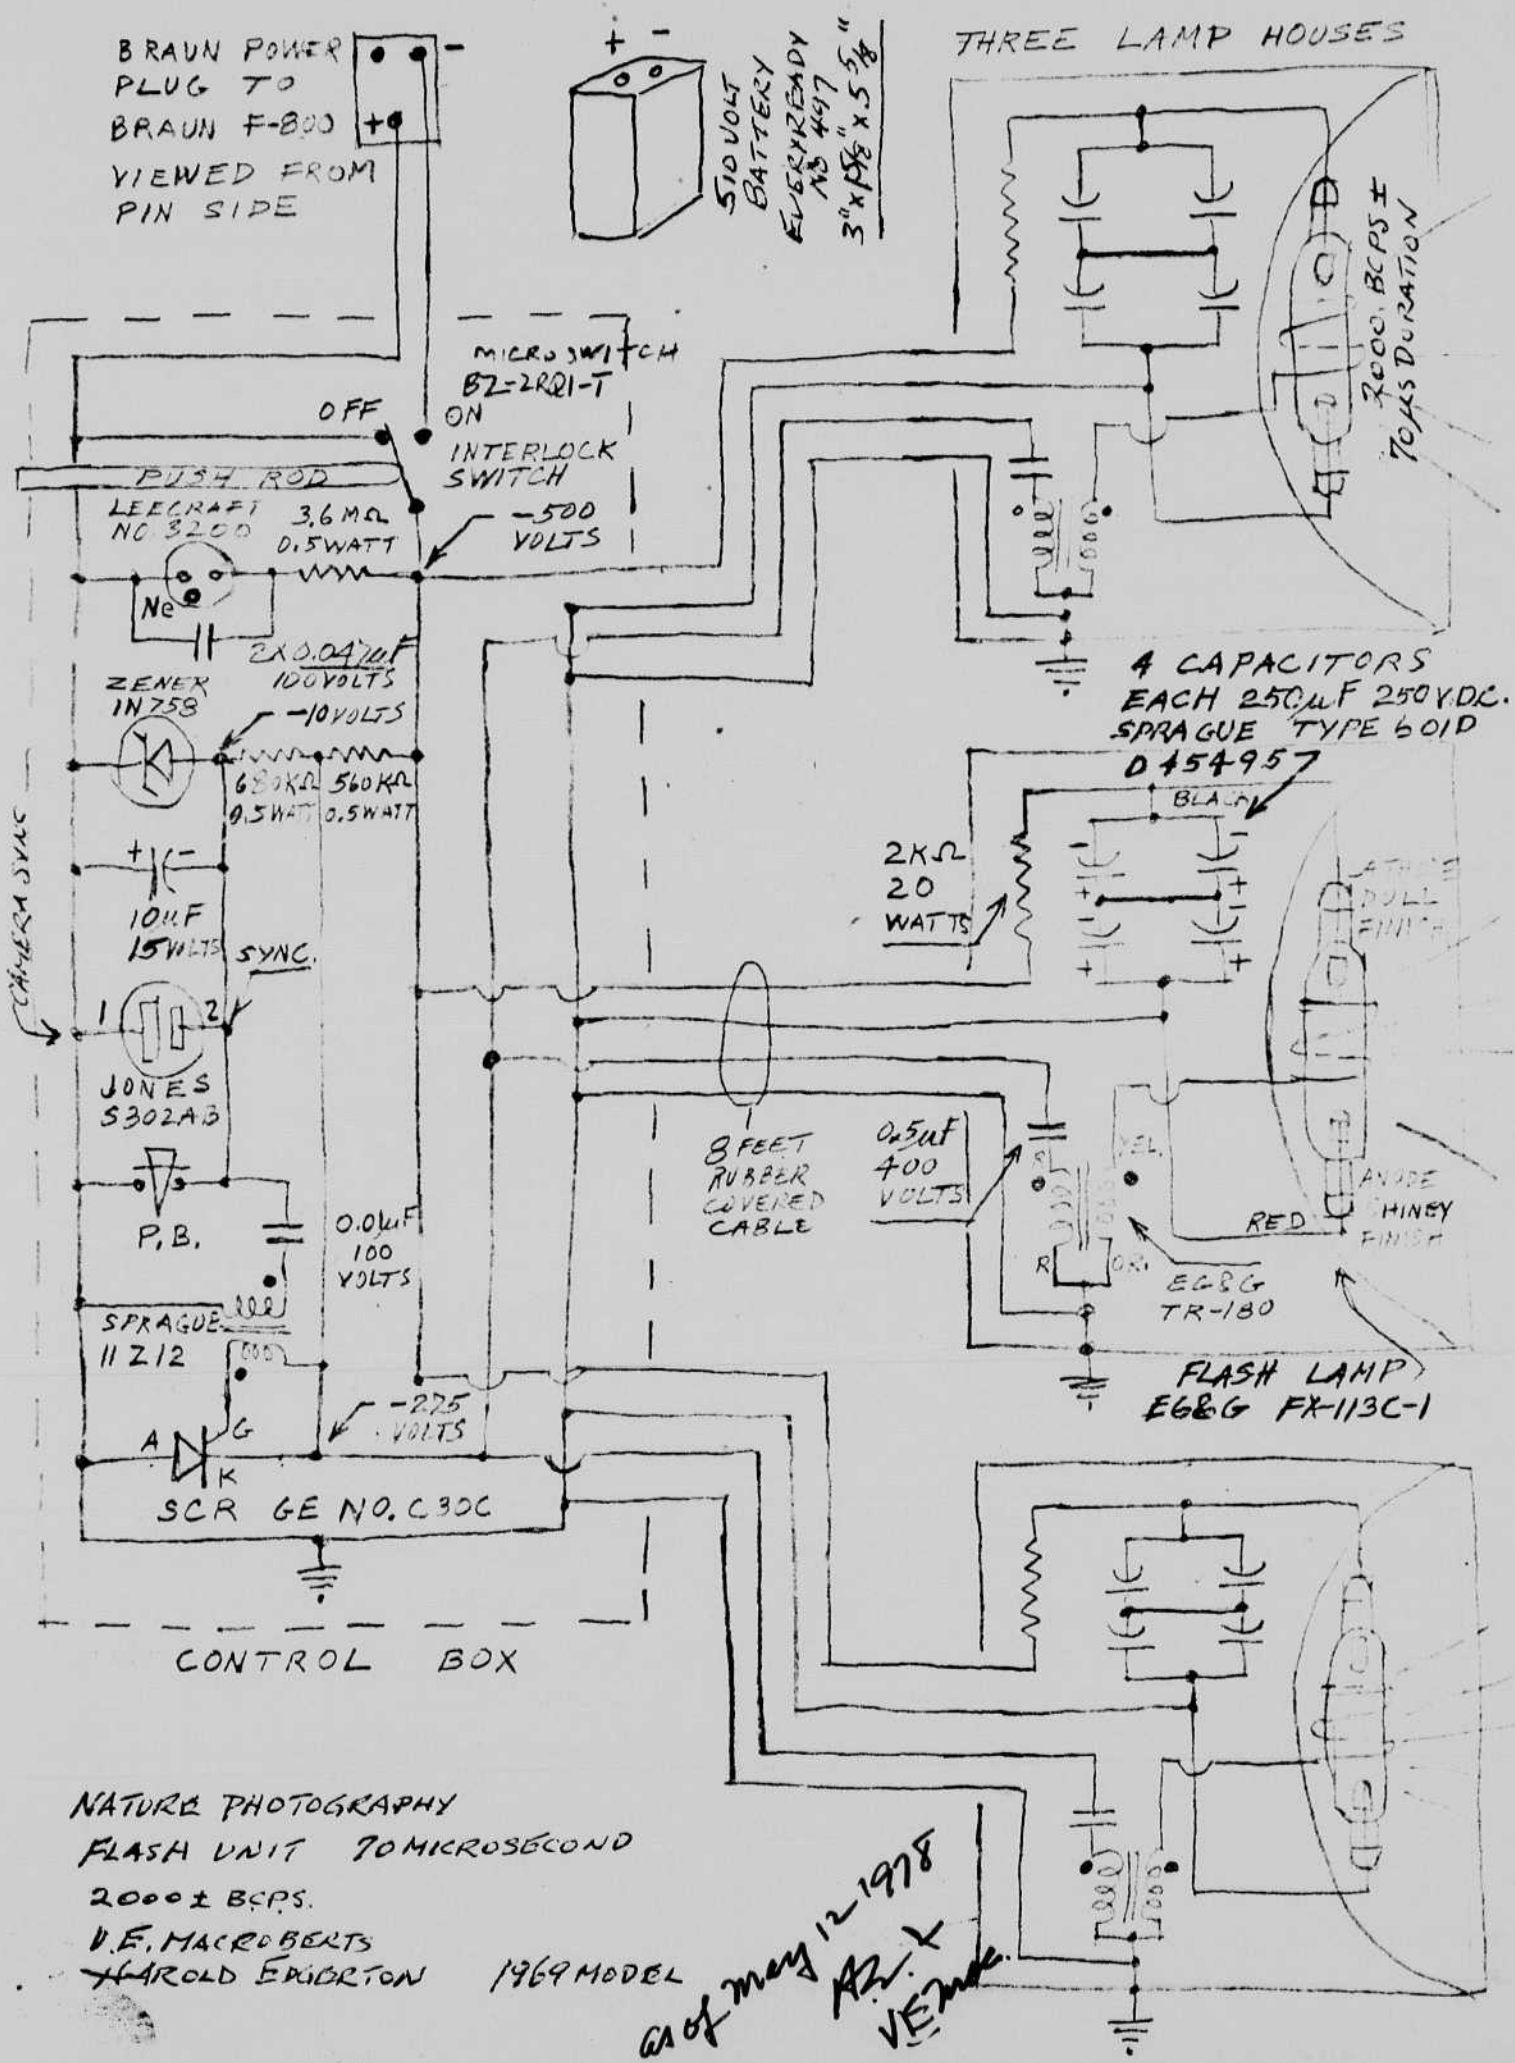 BRAUN POWER
PLUG TO
BRAUN F-800
VIEWED FROM
PIN SIDE
-
+
+ -
510 VOLT
BATTERY
EVERYREADY
NO 497
THREE LAMP HOUSES
2000. BCPS ±
70 µS DURATION
MICROSWITCH
BZ-2RQ1-T
OFF
ON
INTERLOCK
SWITCH
PUSH ROD
LEECRAFT
NO. 3200
3.6 MΩ
0.5 WATT
-500
VOLTS
Ne
2X0.047µF
100 VOLTS
ZENER
IN758
-10 VOLTS
680KΩ
0.5 WATT
560KΩ
0.5 WATT
+ -
10µF
15 VOLTS
SYNC.
CAMERA SYNC
1
2
JONES
S302AB
P.B.
0.01µF
100
VOLTS
SPRAGUE
11Z12
-275
VOLTS
A
G
K
SCR GE NO. C30C
CONTROL BOX
4 CAPACITORS
EACH 250µF 250 V.D.C.
SPRAGUE TYPE 601D
D454957
BLACK
2KΩ
20
WATTS
CATHODE
DULL
FINISH
8 FEET
RUBBER
COVERED
CABLE
0.5µF
400
VOLTS
YEL.
R
OR.
RED
ANODE
SHINEY
FINISH
EG&G
TR-180
FLASH LAMP
EG&G FX-113C-1
NATURE PHOTOGRAPHY
FLASH UNIT 70 MICROSECOND
2000 ± BCPS.
V.E. MACROBERTS
HAROLD EDGERTON 1969 MODEL
as of May 12 1978